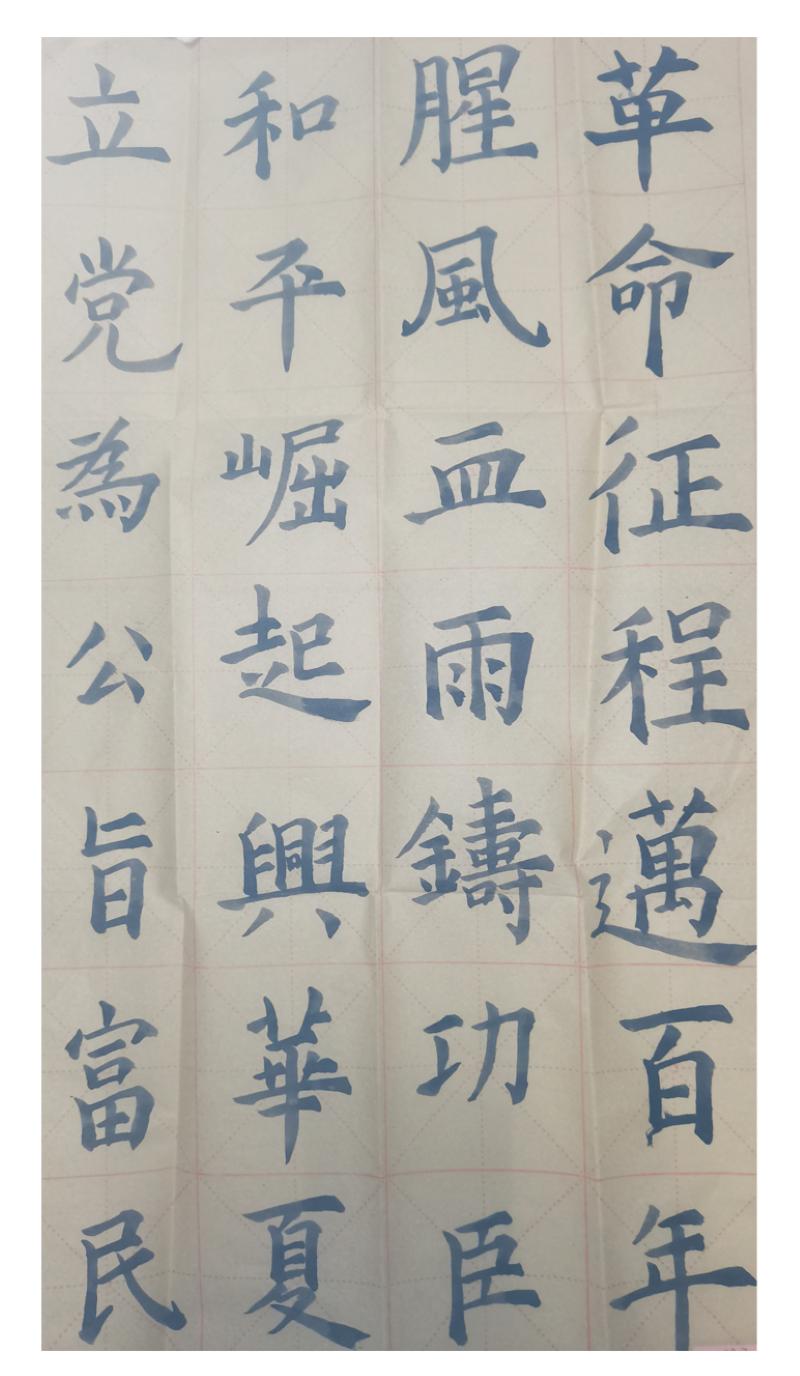 革命征程邁百年
腥風血雨鑄功臣
和平崛起興華夏
立党為公旨富民